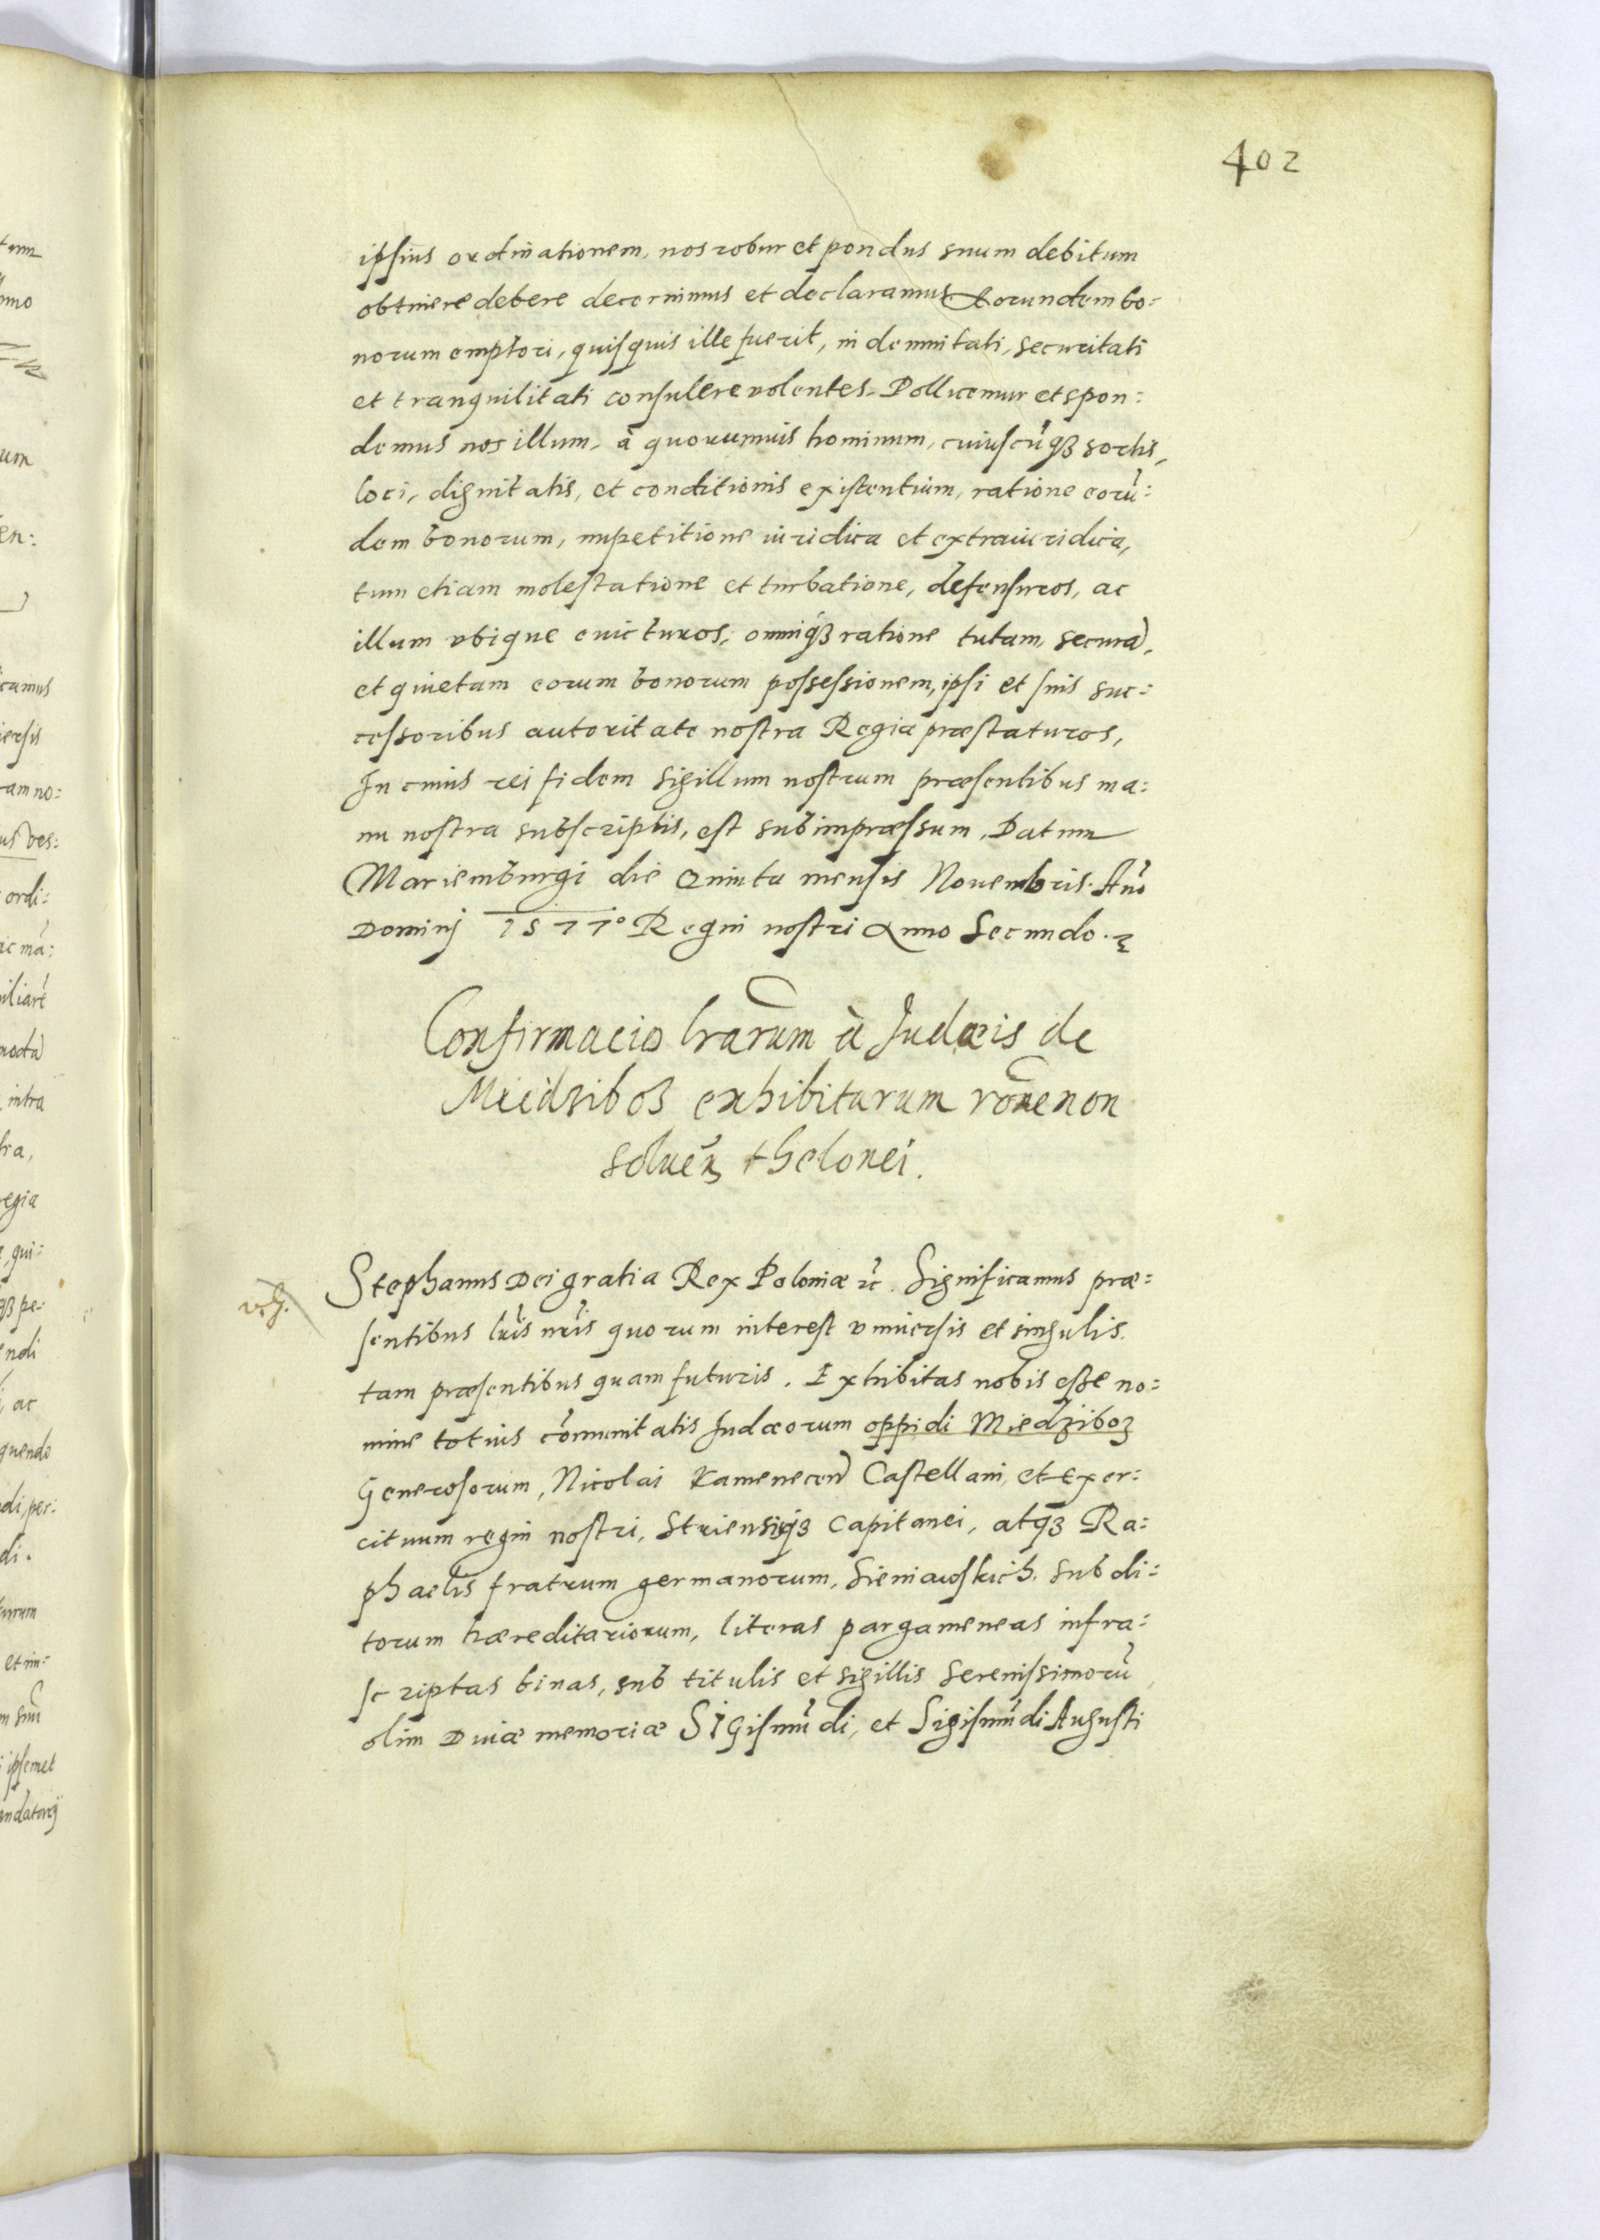 402
ipsius ordinationem, nos robur et pondus suum debitum
obtinere debere decernimus et declaramus. Eorundem bo:
norum emptori, quisquis ille fuerit, indemnitati, securitati
et tranquilitati consulere volentes. Pollicemur et spon:
demus nos illum, à quorumvis hominum, cuiuscũqꝫ sortis,
loci, dignitatis, et conditionis existentium, ratione eorũ:
dem bonorum, impetitione iuridica et extraiuridica,
tum etiam molestatione et turbatione, defensuros, ac
illum vbique euicturos, omniqꝫ ratione tutam, securã,
et quietam eorum bonorum possessionem, ipsi et suis suc:
cessoribus autoritate nostra Regia præstaturos,
In cuius rei fidem sigillum nostrum præsentibus ma:
nu nostra subscriptis, est subimpræssum. Datum
Mariemburgi die Quinta mensis Nouembris. Año
Dominj 1577º Regni nostri Anno Secundo.
Confirmacio lrarum à Judæis de
Miedziboz exhibitarum rõne non
soluen thelonei.
v.g.
Stephanus Dei gratia Rex Poloniæ ꝛc. Significamus præ:
sentibus lris nris quorum interest vniuersis et singulis.
tam præsentibus quam futuris. Exhibitas nobis esse no:
mine totius cõmunitatis Judæorum oppidi Miedziboz
Generosorum, Nicolai Kamenecen Castellani, et exer:
cituum regni nostri, Striensisqꝫ Capitanei, atqꝫ Ra:
phaelis fratrum germanorum, Sieniawskich. subdi:
torum hæreditariorum, literas pargameneas infra:
scriptas binas, sub titulis et sigillis Serenissimorũ
olim Diuæ memoriæ Sigismũdi, et Sigismũdi Augusti